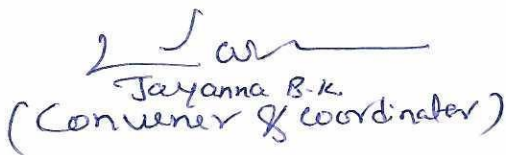 Jayanna B.K.
(Convener & Coordinator)